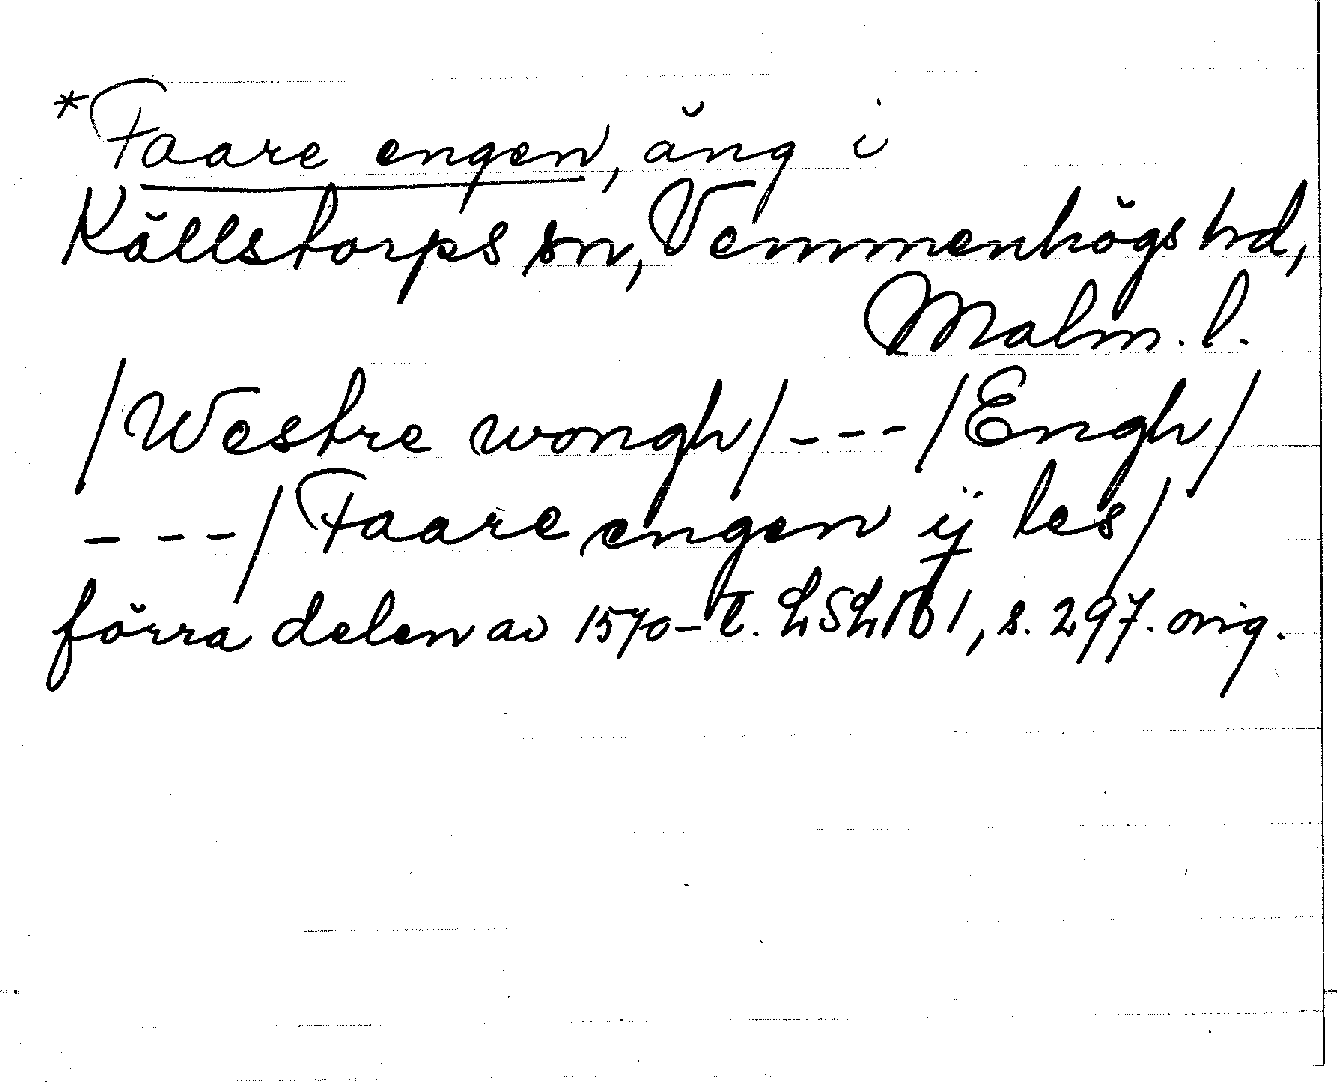 *Faare engen, äng i
Källstorps sn, Vemmenhögs hd,
Malm. l.
/Westre wongh/ --- /Engh/
--- /Faare engen ij les/
förra delen av 1570-t. LSLJb 1, s. 297. orig.